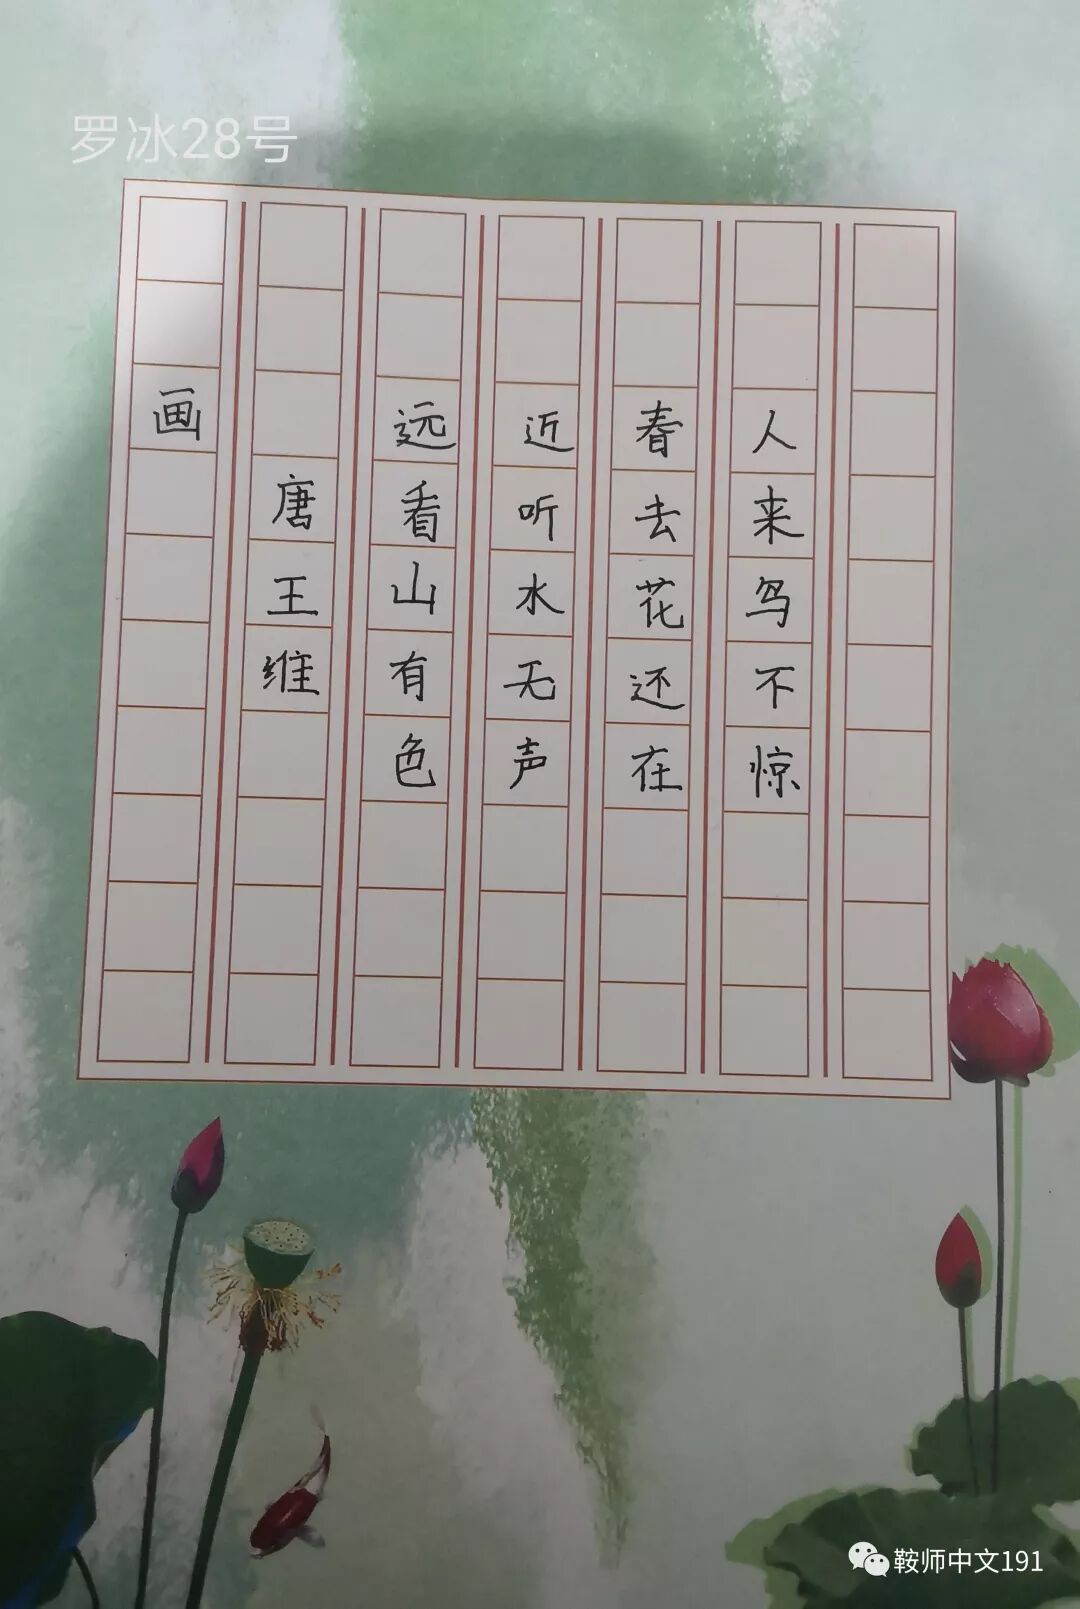 罗冰28号
画
唐王维
远看山有色
近听水无声
春去花还在
人来鸟不惊
鞍师中文191